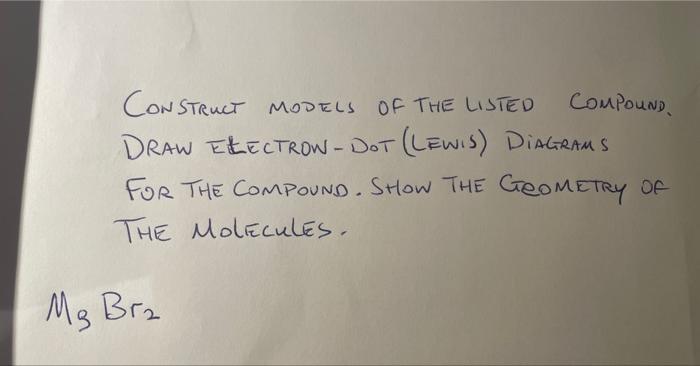 CONSTRUCT MODELS OF THE LISTED COMPOUND.
DRAW ELECTRON-DOT (LEWIS) DIAGRAMS
FOR THE COMPOUND. SHOW THE GEOMETRY OF
THE MOLECULES.
Mg Br₂